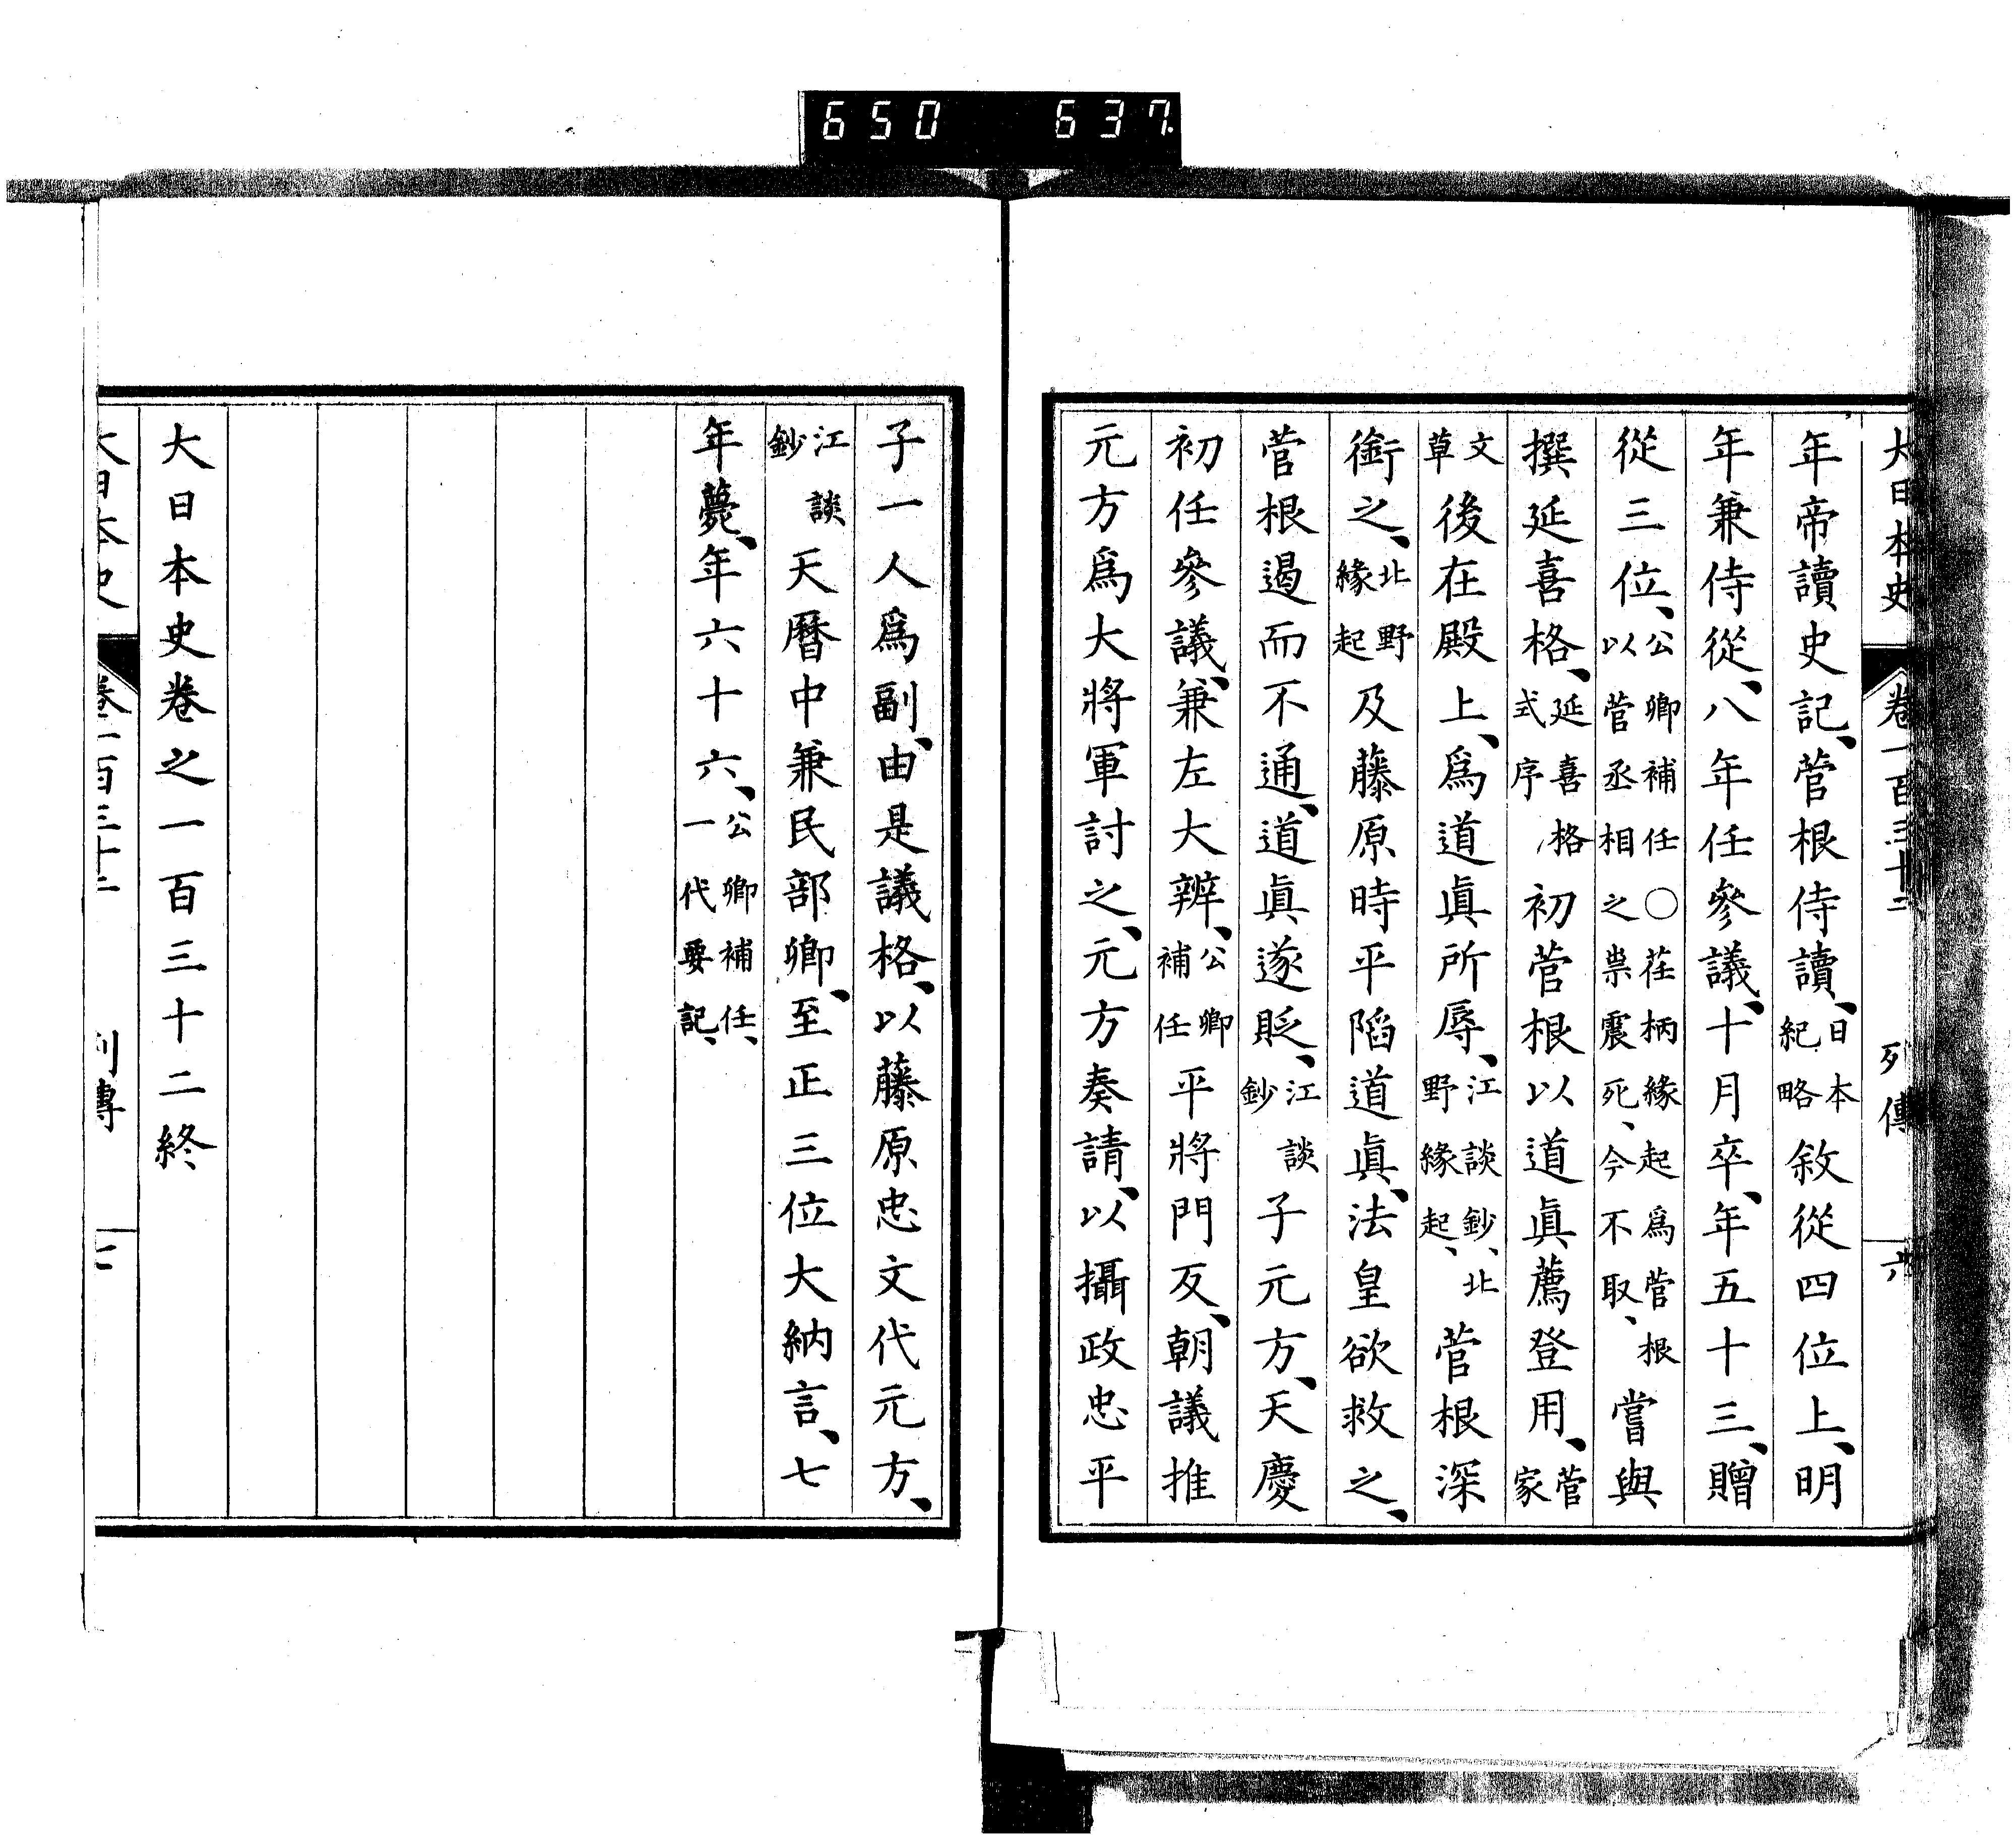 650 637.
大日本史 卷一百三十二 列傳 六
年帝讀史記、菅根侍讀、日本紀略敘從四位上、明
年兼侍從、八年任參議、十月卒、年五十三、贈
從三位、公卿補任〇荏柄緣起爲菅根以菅丞相之祟震死、今不取、嘗與
撰延喜格、延喜格式序初菅根以道眞薦登用、菅家
文草後在殿上、爲道眞所辱、江談鈔、北野緣起、菅根深
銜之、北野緣起及藤原時平陷道眞、法皇欲救之、
菅根遏而不通、道眞遂貶、江談鈔子元方、天慶
初任參議、兼左大辨、公卿補任平將門反、朝議推
元方爲大將軍討之、元方奏請、以攝政忠平
子一人爲副、由是議格、以藤原忠文代元方、
江談鈔天曆中兼民部卿、至正三位大納言、七
年薨、年六十六、公卿補任、一代要記、
大日本史卷之一百三十二終
大日本史 卷一百三十二 列傳 七